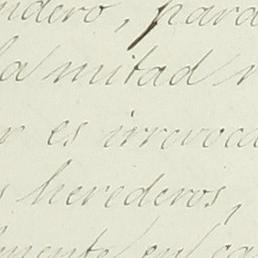 ndero, para
la mitad
r es irrevoca
s herederos,
lmente en ca